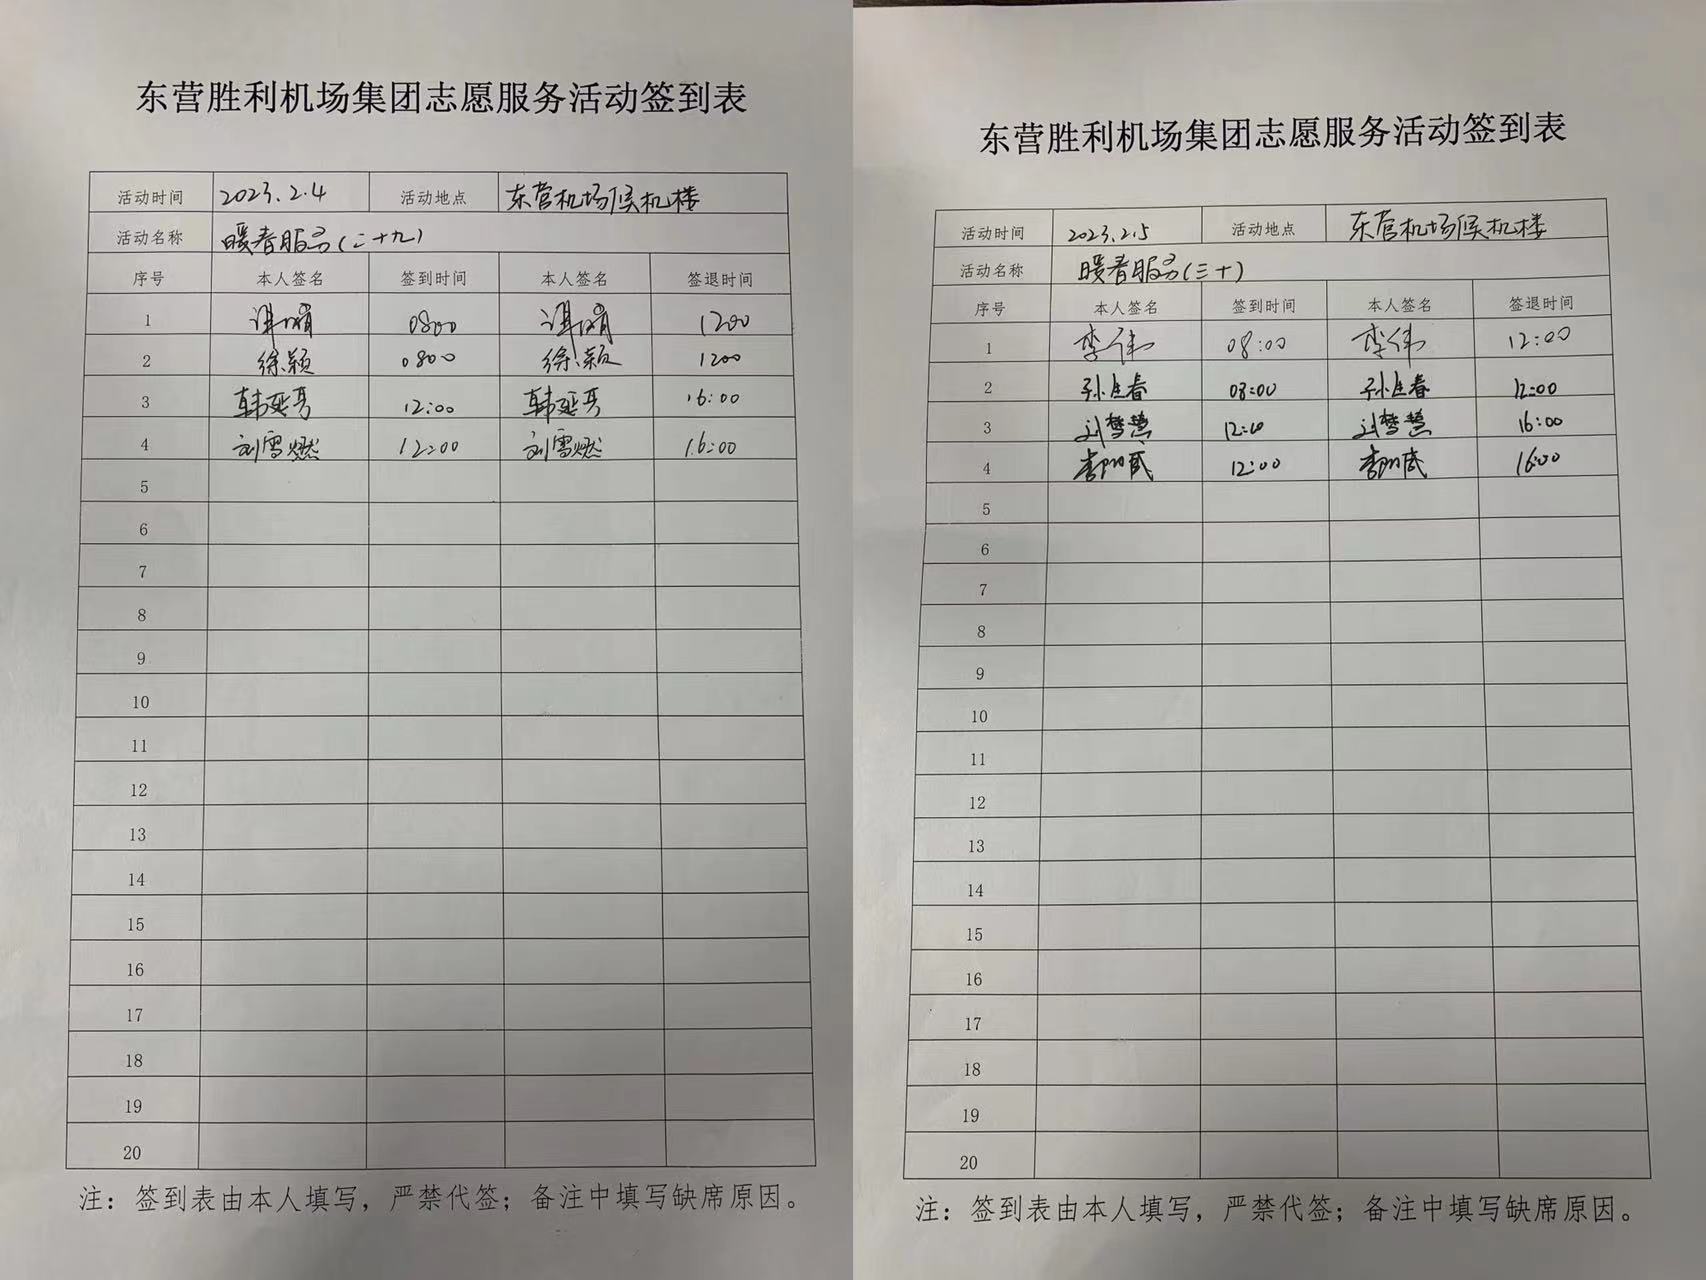 东营胜利机场集团志愿服务活动签到表
活动时间 2023.2.4 活动地点 东营机场候机楼
活动名称 暖春服务(二十九)
序号 本人签名 签到时间 本人签名 签退时间
1 0800 1200
2 徐颖 0800 徐颖 1200
3 韩延秀 12:00 韩延秀 16:00
4 刘雪燃 12:00 刘雪燃 16:00
5
6
7
8
9
10
11
12
13
14
15
16
17
18
19
20
注：签到表由本人填写，严禁代签；备注中填写缺席原因。
东营胜利机场集团志愿服务活动签到表
活动时间 2023.2.5 活动地点 东营机场候机楼
活动名称 暖春服务(三十)
序号 本人签名 签到时间 本人签名 签退时间
1 李伟 08:00 李伟 12:00
2 08:00 12:00
3 刘梦慧 12:00 刘梦慧 16:00
4 12:00 16:00
5
6
7
8
9
10
11
12
13
14
15
16
17
18
19
20
注：签到表由本人填写，严禁代签；备注中填写缺席原因。